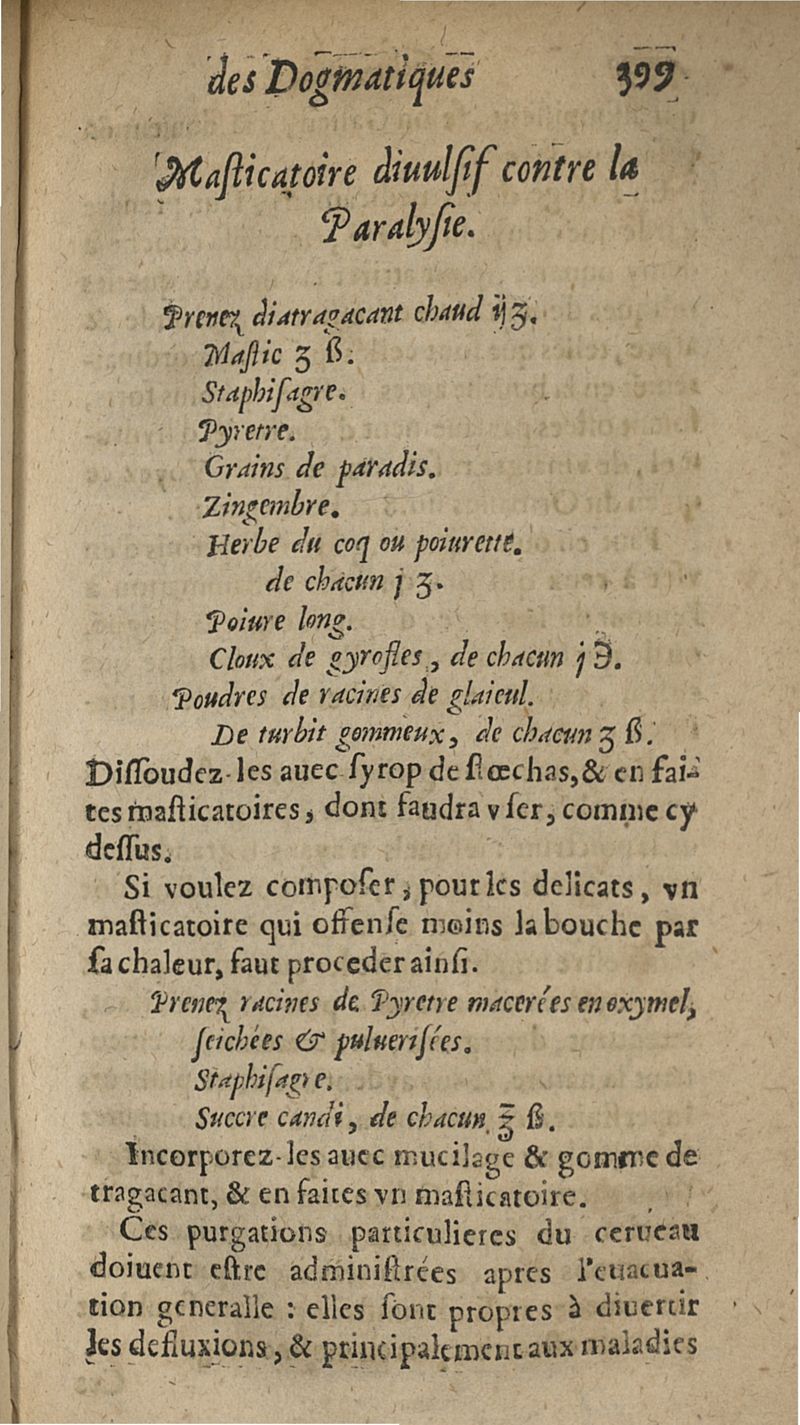 des Dogmatiques 399
Maſticatoire diuulſif contre la
Paralyſie.
Prenez diatragacant chaud ij ʒ.
Maſtic ʒ ß.
Staphiſagre.
Pyretre.
Grains de paradis.
Zingembre.
Herbe du coq ou poiurette.
de chacun j ʒ.
Poiure long.
Cloux de gyrofles, de chacun j ℈.
Poudres de racines de glaieul.
De turbit gommeux, de chacun ʒ ß.
Diſſoudez-les auec ſyrop de ſtœchas, & en fai-
tes maſticatoires, dont faudra vſer, comme cy
deſſus.
Si voulez compoſer, pour les delicats, vn
maſticatoire qui offenſe moins la bouche par
ſa chaleur, faut proceder ainſi.
Prenez racines de Pyretre macerées en oxymel,
ſeichées & pulueriſées.
Staphiſagre.
Succre candi, de chacun ℥ ß.
Incorporez-les auec mucilage & gomme de
tragacant, & en faites vn maſticatoire.
Ces purgations particulieres du cerueau
doiuent eſtre adminiſtrées apres l'euacua-
tion generalle : elles ſont propres à diuertir
les defluxions, & principalement aux maladies